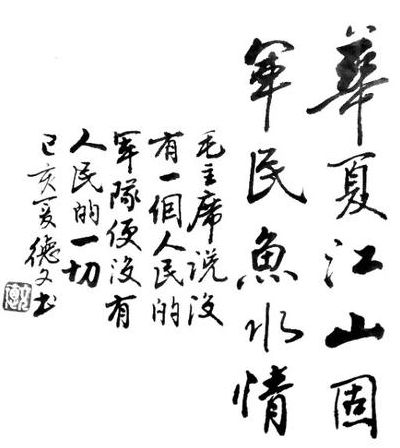 華夏江山固
軍民魚水情
毛主席说没
有一個人民的
軍隊便没有
人民的一切
己亥夏德文书